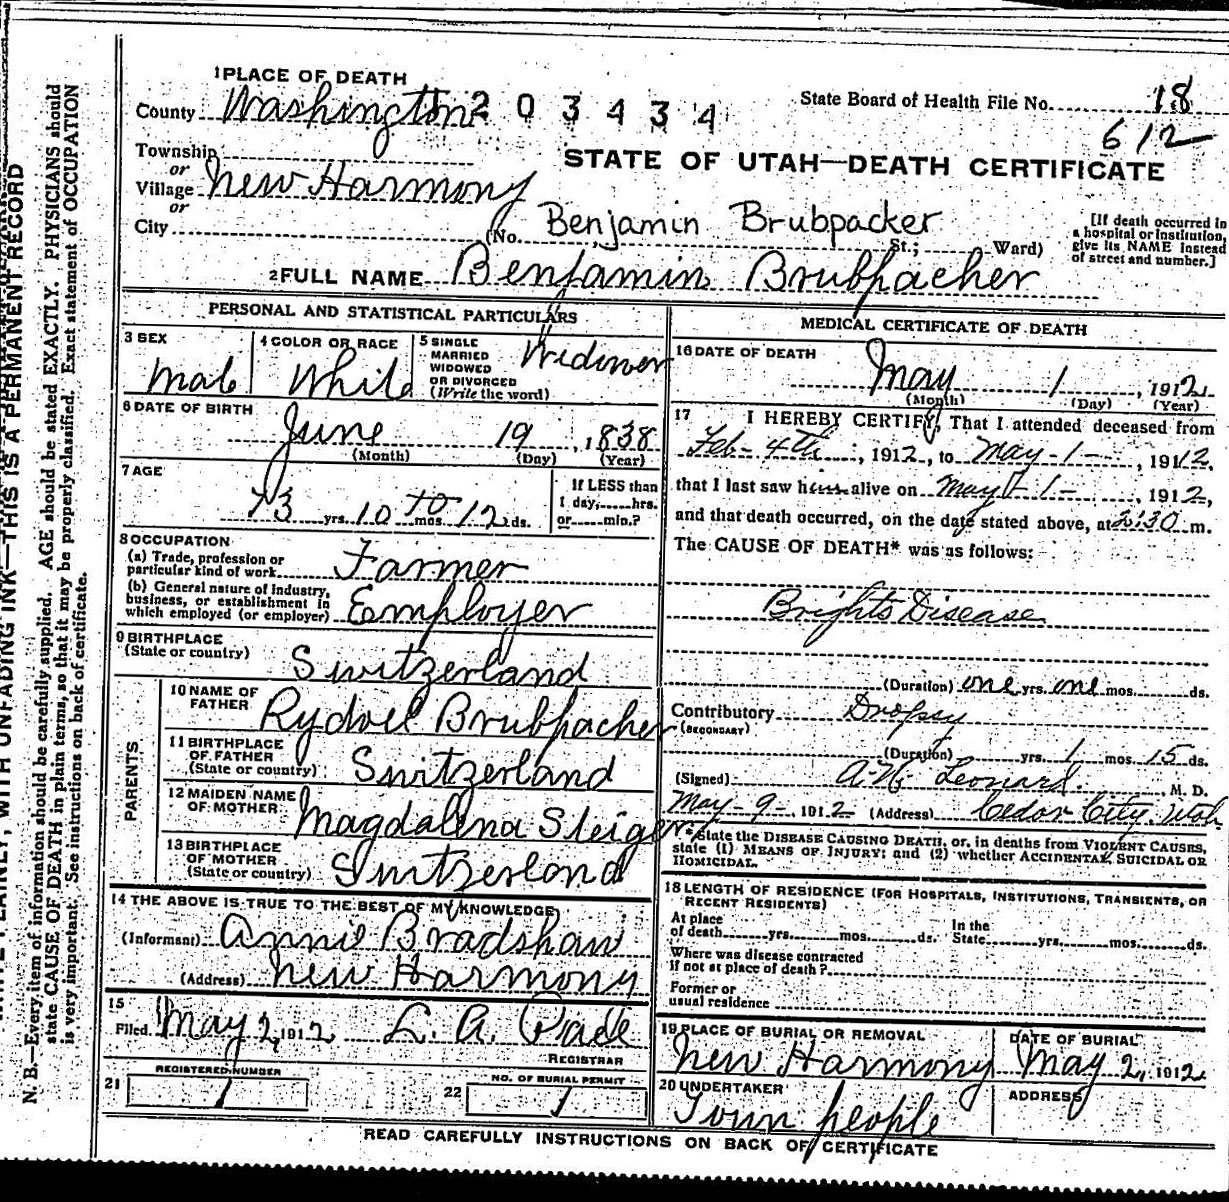 1 PLACE OF DEATH
County Washington 203434
State Board of Health File No. 18
612
Township
or
Village New Harmony
or
City
STATE OF UTAH—DEATH CERTIFICATE
Benjamin Brubpacker
(No. St.; Ward)
[If death occurred in
a hospital or institution,
give its NAME instead
of street and number.]
2 FULL NAME Benjamin Brubpacher
PERSONAL AND STATISTICAL PARTICULARS
3 SEX
Male
4 COLOR OR RACE
White
5 SINGLE
MARRIED
WIDOWED
OR DIVORCED
(Write the word)
Widower
6 DATE OF BIRTH
June 19, 1838
(Month) (Day) (Year)
7 AGE
73 yrs. 10 mos. 12 ds.
If LESS than
1 day, hrs.
or min.?
8 OCCUPATION
(a) Trade, profession or
particular kind of work Farmer
(b) General nature of industry,
business, or establishment in
which employed (or employer) Employer
9 BIRTHPLACE
(State or country) Switzerland
PARENTS
10 NAME OF
FATHER Rydoel Brubpacher
11 BIRTHPLACE
OF FATHER
(State or country) Switzerland
12 MAIDEN NAME
OF MOTHER Magdalena Steiger
13 BIRTHPLACE
OF MOTHER
(State or country) Switzerland
14 THE ABOVE IS TRUE TO THE BEST OF MY KNOWLEDGE
(Informant) Annie Bradshaw
(Address) New Harmony
15
Filed May 2, 1912 L. A. Pace
REGISTRAR
REGISTERED NUMBER
21 1
NO. OF BURIAL PERMIT
22 1
MEDICAL CERTIFICATE OF DEATH
16 DATE OF DEATH
May 1, 1912
(Month) (Day) (Year)
17 I HEREBY CERTIFY, That I attended deceased from
Feb-4th, 1912, to May-1-, 1912,
that I last saw him alive on May-1-, 1912,
and that death occurred, on the date stated above, at 2:30 m.
The CAUSE OF DEATH* was as follows:
Brights Disease
(Duration) one yrs. one mos. ds.
Contributory Dropsy
(SECONDARY)
(Duration) yrs. 1 mos. 15 ds.
(Signed) A. N. Leonard. M. D.
May-9-, 1912 (Address) Cedar City, Utah
*State the DISEASE CAUSING DEATH, or, in deaths from VIOLENT CAUSES,
state (1) MEANS OF INJURY; and (2) whether ACCIDENTAL, SUICIDAL OR
HOMICIDAL.
18 LENGTH OF RESIDENCE (FOR HOSPITALS, INSTITUTIONS, TRANSIENTS, OR
RECENT RESIDENTS)
At place
of death yrs. mos. ds.
In the
State yrs. mos. ds.
Where was disease contracted
if not at place of death?
Former or
usual residence
19 PLACE OF BURIAL OR REMOVAL
New Harmony
DATE OF BURIAL
May 2, 1912
20 UNDERTAKER
Town people
ADDRESS
READ CAREFULLY INSTRUCTIONS ON BACK OF CERTIFICATE
WITH UNFADING INK—THIS IS A PERMANENT RECORD
N. B.—Every item of information should be carefully supplied. AGE should be stated EXACTLY. PHYSICIANS should
state CAUSE OF DEATH in plain terms, so that it may be properly classified. Exact statement of OCCUPATION
is very important. See instructions on back of certificate.